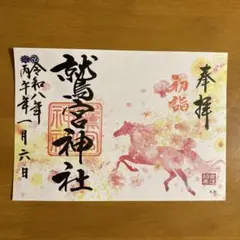 奉拝
初詣
鷲宮神社
令和八年
丙午年一月六日